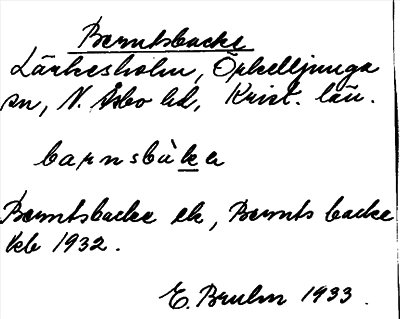 Berntsbacke
Lärkesholm, Örkelljunga
sn, N. Åsbo hd, Krist. län.
barnsbàka
Berntsbacke ek, Bernts backe
kb 1932.
E. Bruhn 1933.